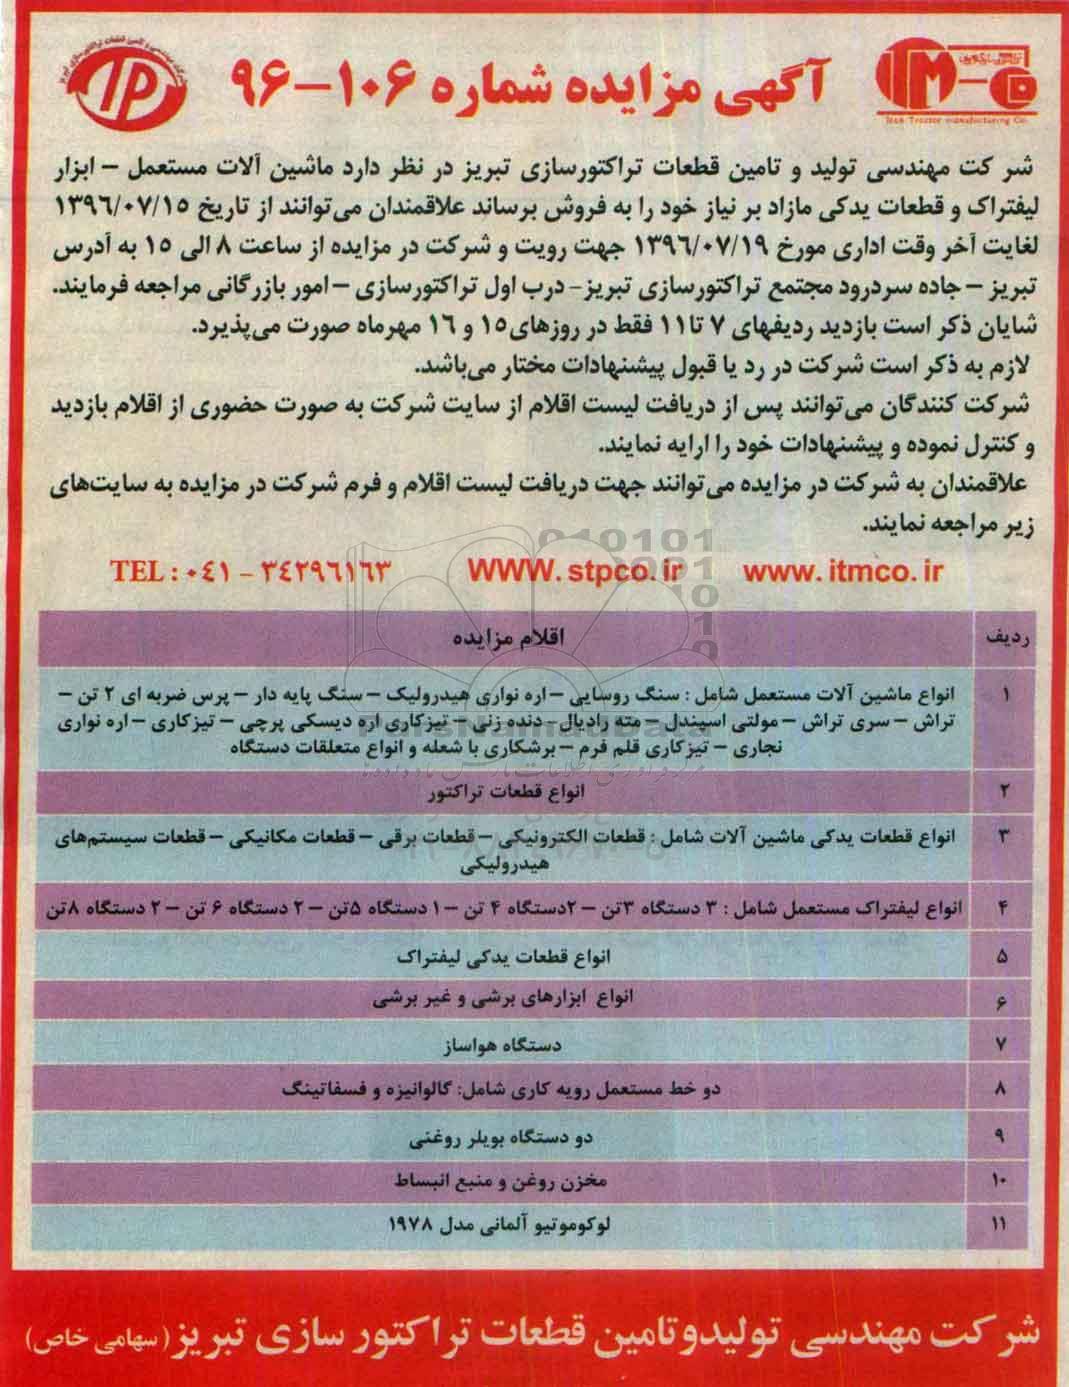 آگهی مزایده شماره ۱۰۶-۹۶
Iran Tractor manufacturing Co.
شرکت مهندسی تولید و تامین قطعات تراکتورسازی تبریز در نظر دارد ماشین آلات مستعمل – ابزار
لیفتراک و قطعات یدکی مازاد بر نیاز خود را به فروش برساند علاقمندان می‌توانند از تاریخ ۱۳۹۶/۰۷/۱۵
لغایت آخر وقت اداری مورخ ۱۳۹۶/۰۷/۱۹ جهت رویت و شرکت در مزایده از ساعت ۸ الی ۱۵ به آدرس
تبریز – جاده سردرود مجتمع تراکتورسازی تبریز- درب اول تراکتورسازی – امور بازرگانی مراجعه فرمایند.
شایان ذکر است بازدید ردیفهای ۷ تا ۱۱ فقط در روزهای ۱۵ و ۱۶ مهرماه صورت می‌پذیرد.
لازم به ذکر است شرکت در رد یا قبول پیشنهادات مختار می‌باشد.
شرکت کنندگان می‌توانند پس از دریافت لیست اقلام از سایت شرکت به صورت حضوری از اقلام بازدید
و کنترل نموده و پیشنهادات خود را ارایه نمایند.
علاقمندان به شرکت در مزایده می‌توانند جهت دریافت لیست اقلام و فرم شرکت در مزایده به سایت‌های
زیر مراجعه نمایند.
www.itmco.ir WWW.stpco.ir TEL : ۰۴۱ - ۳۴۲۹۶۱۶۳
ردیف اقلام مزایده
۱ انواع ماشین آلات مستعمل شامل : سنگ روسایی – اره نواری هیدرولیک – سنگ پایه دار – پرس ضربه ای ۲ تن –
تراش – سری تراش – مولتی اسپیندل – مته رادیال- دنده زنی – تیزکاری اره دیسکی پرچی – تیزکاری – اره نواری
نجاری – تیزکاری قلم فرم – برشکاری با شعله و انواع متعلقات دستگاه
۲ انواع قطعات تراکتور
۳ انواع قطعات یدکی ماشین آلات شامل : قطعات الکترونیکی – قطعات برقی – قطعات مکانیکی – قطعات سیستم‌های
هیدرولیکی
۴ انواع لیفتراک مستعمل شامل : ۳ دستگاه ۳تن – ۲دستگاه ۴ تن – ۱ دستگاه ۵تن – ۲ دستگاه ۶ تن – ۲ دستگاه ۸تن
۵ انواع قطعات یدکی لیفتراک
۶ انواع ابزارهای برشی و غیر برشی
۷ دستگاه هواساز
۸ دو خط مستعمل رویه کاری شامل: گالوانیزه و فسفاتینگ
۹ دو دستگاه بویلر روغنی
۱۰ مخزن روغن و منبع انبساط
۱۱ لوکوموتیو آلمانی مدل ۱۹۷۸
شرکت مهندسی تولیدوتامین قطعات تراکتور سازی تبریز (سهامی خاص)